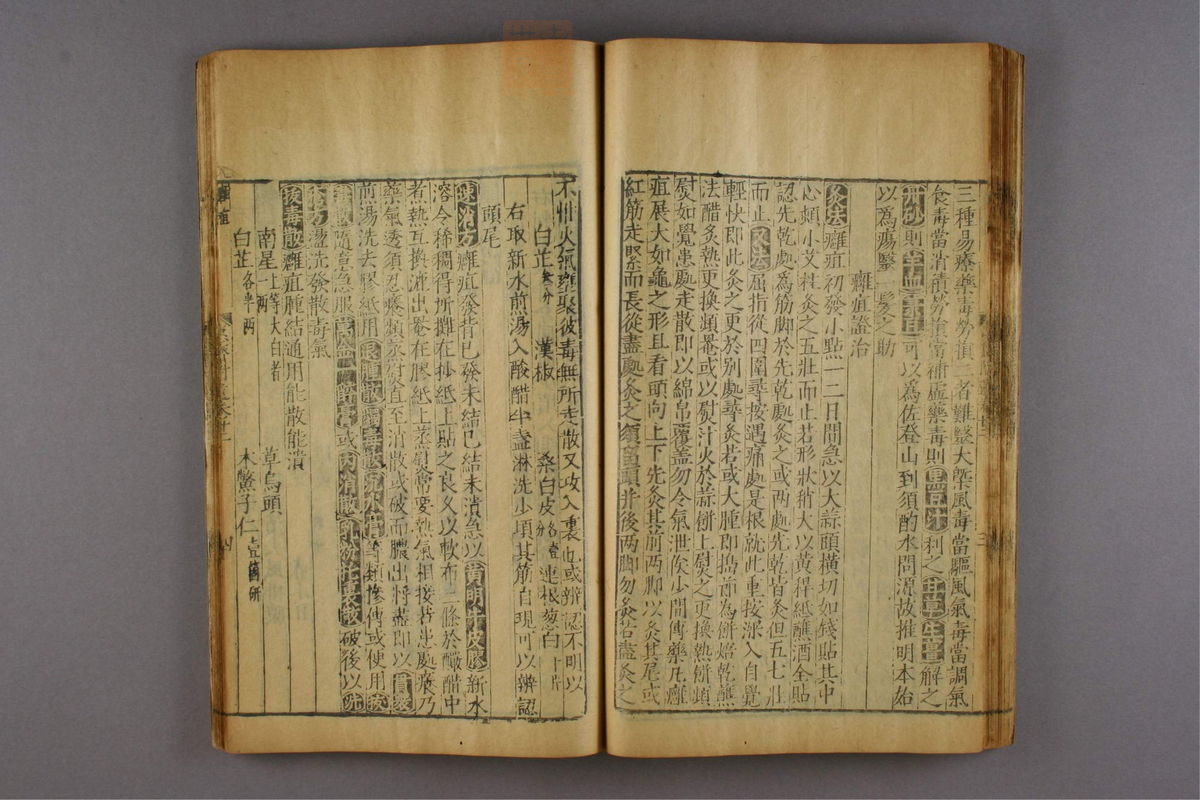 三種易療藥毒勞損二者難毉大槩風毒當驅風氣毒當調氣
食毒當消積勞損當補虛藥毒則黑豆汁利之甘草生薑解之
丹砂則羊血可以為佐登山到須酌水問源故推明本始
以為瘍毉一髮之助
癰疽證治
灸法癰疽初發小點一二日間急以大蒜頭橫切如錢貼其中
心頓小艾柱灸之五壯而止若形狀稍大以黃稈紙醮酒全貼
認先乾處為筋脚於先乾處灸之或兩處先乾皆灸但五七壯
而止又法屈指從四圍尋按遇痛處是根就此重按深入自覺
輕快即此灸之更於別處尋灸若或大腫即搗蒜為餅焙乾蘸
法醋灸熱更換頻罨或以熨汁火於蒜餅上熨之更換熱餅頻
熨如覺患處走散即以綿帛覆蓋勿令氣泄俟少間傅藥凡癰
疽展大如龜之形且看頭向上下先灸其前兩脚以灸其尾或
紅筋走緊而長從盡處灸之須留頭并後兩脚勿灸若盡灸之
不惟火氣壅聚彼毒無所走散又攻入裏也或辨認不明以
白芷叁分 漢椒 桑白皮各壹分 連根葱白十片
右取新水煎湯入酸醋半盞淋洗少頃其筋自現可以辨認
頭尾
四
溶令稀稠得所攤在抄紙上貼之良久以軟布二條於釅醋中
煮熱互換漉出罨在膠紙上蒸熨常要熱氣相接若患處癢乃
藥氣透須忍癢頻蒸熨直至消散或破而膿出將盡即以貫衆
煎湯洗去膠紙用
隨意急服
方盪洗發散毒氣
後毒散癰疽腫結通用能散能潰
南星一兩上等大白者 草烏頭
白芷各半兩 木鱉子仁壹箇研